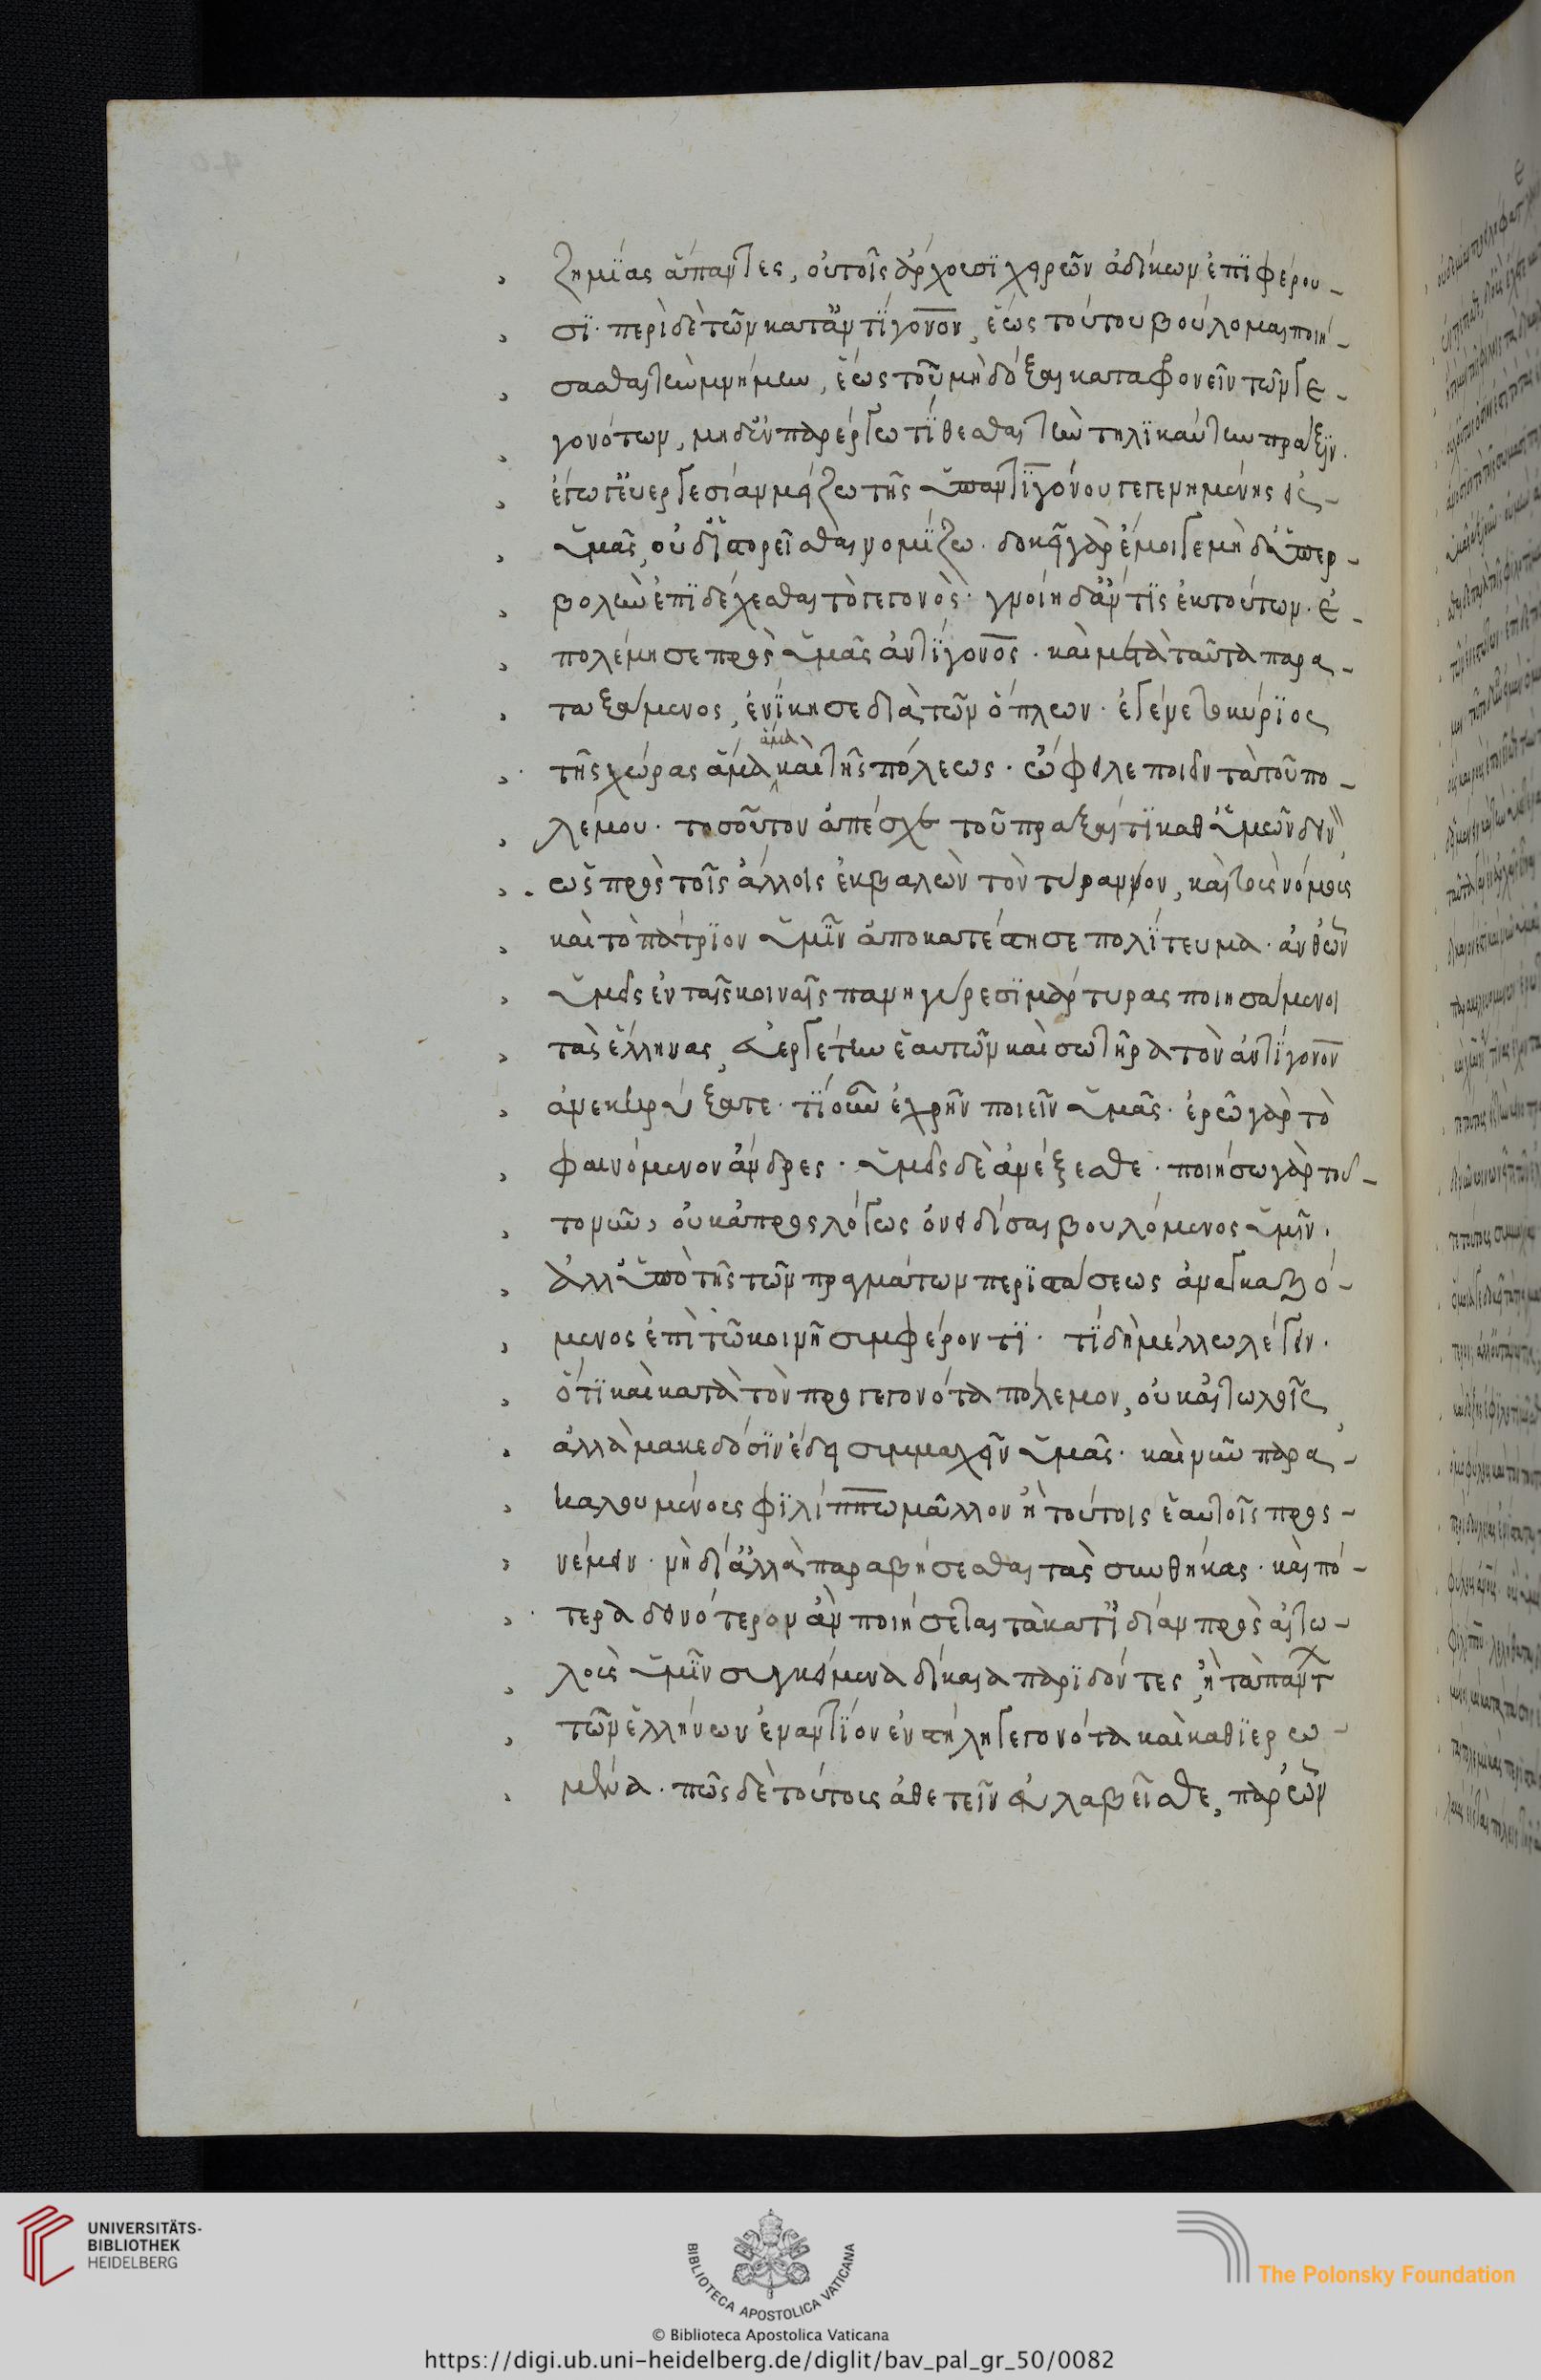 ζημίας ἅπαντες, οὐ τοῖς ἄρχουσι χειρῶν ἀδίκων ἐπιφέρου-
σι. περὶ δὲ τῶν κατ' ἀντίγονον, ἕως τούτου βούλομαι ποιή-
σασθαι τὴν μνήμην, ἕως τοῦ μὴ δόξαι καταφονεῖν τῶν γε-
γονότων, μηδ' ἐν παρέργω τίθεσθαι τὴν τηλικαύτην πρᾶξιν.
ἐγὼ γ' εὐεργεσίαν μείζω τῆς ὑπ' ἀντιγόνου γεγενημένης εἰς
ὑμᾶς, οὐδ' ἱστορεῖσθαι νομίζω. δοκεῖ γὰρ ἔμοιγε μηδ' ὑπερ-
βολὴν ἐπιδέχεσθαι τὸ γεγονὸς. γνοίη δ' ἄν τις ἐκ τούτων. ἐ-
πολέμησε πρὸς ὑμᾶς ἀντίγονος. καὶ μετὰ ταῦτα παρα-
ταξάμενος, ἐνίκησε διὰ τῶν ὅπλων. ἐγένετο κύριος
τῆς χώρας ἅμα ἅμα καὶ τῆς πόλεως. ὤφειλε ποιεῖν τὰ τοῦ πο-
λέμου. τοσοῦτον ἀπέσχε τοῦ πρᾶξαί τι καθ' ὑμῶν δειν
ῶν πρὸς τοῖς ἄλλοις ἐκβαλὼν τὸν τύραννον, καὶ τοὺς νόμους
καὶ τὸ πάτριον ὑμῖν ἀποκατέστησε πολίτευμα. ἀνθ' ὧν
ὑμεῖς ἐν ταῖς κοιναῖς πανηγύρεσι μάρτυρας ποιησάμενοι
τοὺς ἕλληνας, εὐεργέτην ἑαυτῶν καὶ σωτῆρα τὸν ἀντίγονον
ἀνεκηρύξατε. τί οὖν ἐχρῆν ποιεῖν ὑμᾶς. ἐρῶ γὰρ τὸ
φαινόμενον ἄνδρες. ὑμεῖς δὲ ἀνέξεσθε. ποιήσω γὰρ τοῦ-
το νῦν, οὐκ ἀπρὸς λόγως ὀνειδίσαι βουλόμενος ὑμῖν.
ἀλλ' ὑπὸ τῆς τῶν πραγμάτων περιστάσεως ἀναγκαζό-
μενος ἐπὶ τῶ κοινῆ συμφέροντι. τί δὴ μέλλω λέγειν.
ὅτι καὶ κατὰ τὸν προγεγονότα πόλεμον, οὐκ αἰτωλοῖς
ἀλλὰ μακεδόσιν ἔδει συμμαχεῖν ὑμᾶς. καὶ νῦν παρα-
καλουμένους φιλίππω μᾶλλον ἢ τούτοις ἑαυτοὺς προς-
νέμειν. νὴ δί' ἀλλὰ παραβήσεσθαι τὰς συνθήκας. καὶ πό-
τερα δεινότερον ἂν ποιήσεται τὰ κατ' ἰδίαν πρὸς αἰτω-
λοὺς ὑμῖν συγκείμενα δίκαια παριδόντες, ἢ τὰ πάντ
τῶν ἑλλήνων ἐναντίον ἐν στήλη γεγονότα καὶ καθιερω-
μένα. πῶς δὲ τούτους ἀθετεῖν εὐλαβεῖσθε, παρ' ὧν
UNIVERSITÄTS-
BIBLIOTHEK
HEIDELBERG
BIBLIOTECA APOSTOLICA VATICANA
The Polonsky Foundation
© Biblioteca Apostolica Vaticana
https://digi.ub.uni-heidelberg.de/diglit/bav_pal_gr_50/0082